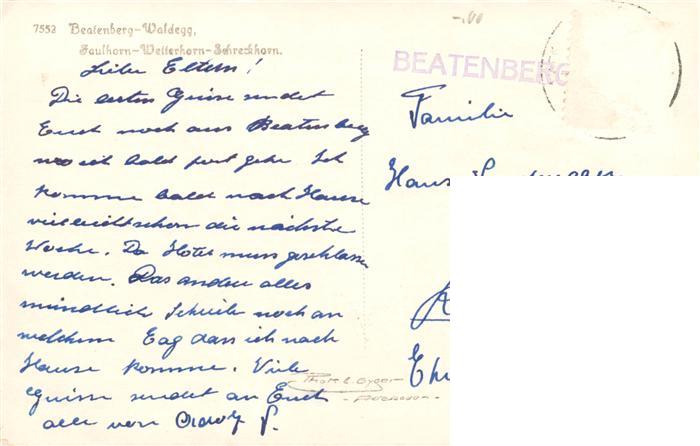 7552 Beatenberg-Waldegg,
Faulhorn-Wetterhorn-Schreckhorn.
BEATENBERG
Liebe Eltern!
Die ersten Grüsse sendet
Euch noch aus Beatenberg
wo ich bald fort gehe. Ich
komme bald nach Hause
vielleicht schon die nächste
Woche. Da Hotel muss geschlossen
werden. Das andere alles
mündlich Schreibe noch an
welchem Tag dass ich nach
Hause komme. Viele
Grüsse sendet an Euch
alle von
Familie
Hans
Photo E. Gyger
Adelboden